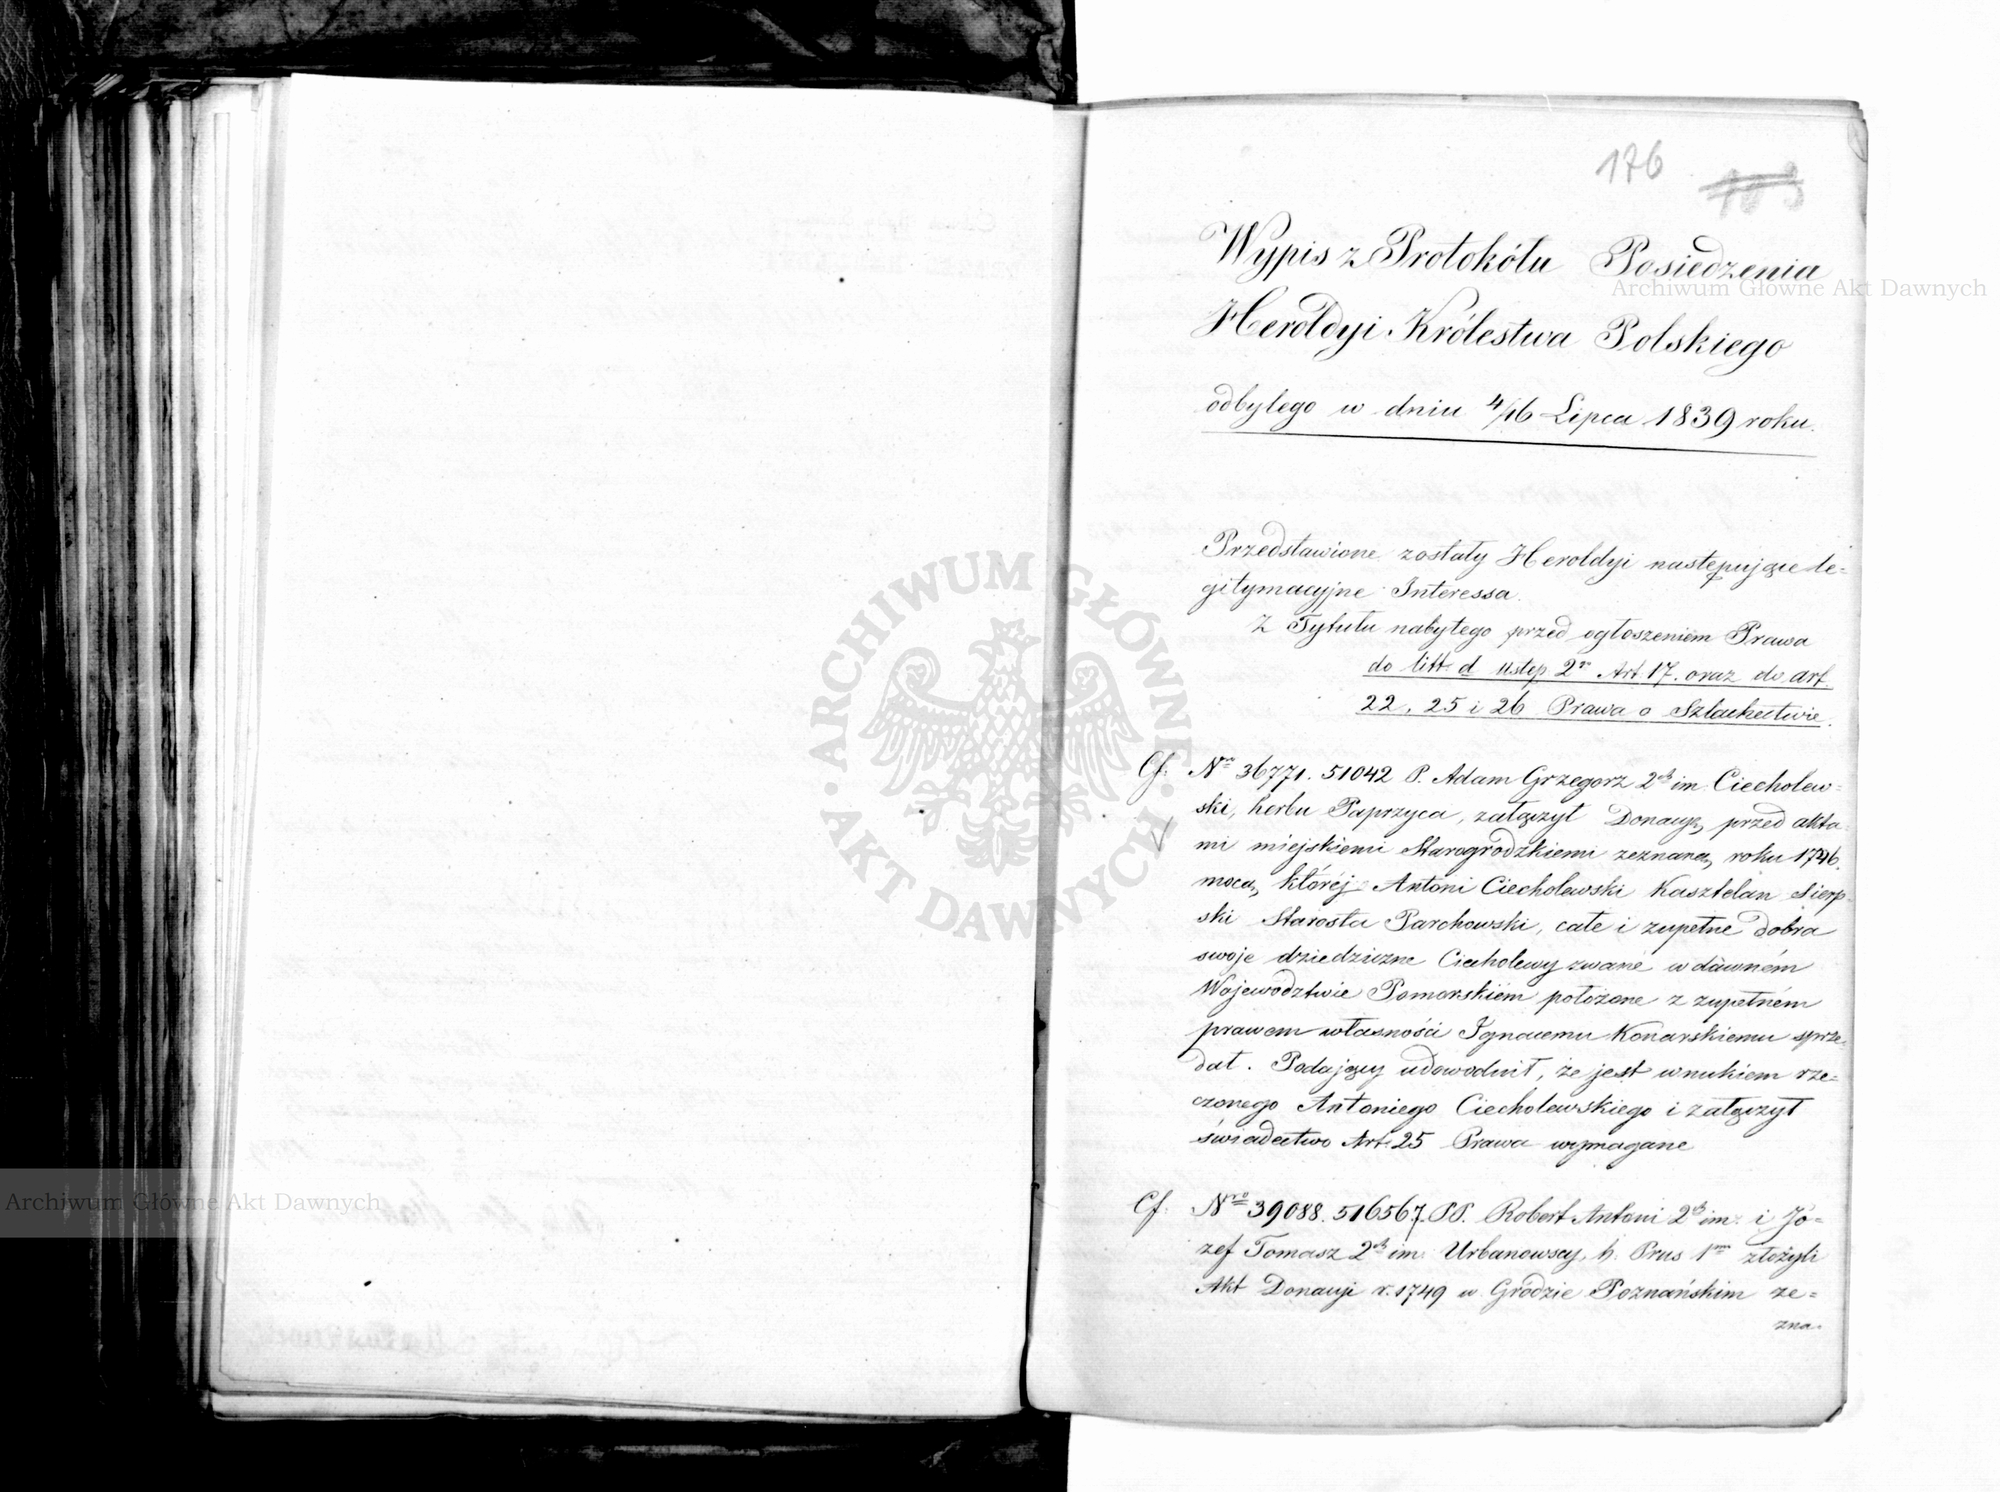 176
Wypis z Protokółu Posiedzenia
Heroldyi Królestwa Polskiego
odbytego w dniu 4/16 Lipca 1839 roku.
Przedstawione zostały Heroldyi następujące le=
gitymacyjne Interessa.
Z Tytułu nabytego przed ogłoszeniem Prawa
do litt. d ustęp 2go Art. 17. oraz do art.
22, 25 i 26 Prawa o Szlachectwie.
Cf. Nro 36771. 51042 P. Adam Grzegorz 2ch im. Ciecholew=
ski, herbu Paprzyca, załączył Donacyą przed akta=
mi miejskiemi Starogrodzkiemi zeznaną, roku 1746.
mocą której Antoni Ciecholewski Kasztelan Sierp=
ski Starosta Parchowski, całe i zupełne dobra
swoje dziedziczne Ciecholewy zwane w dawném
Województwie Pomorskiém położone z zupełném
prawem własności Ignacemu Konarskiemu sprze=
dał. Podający udowodnił, że jest wnukiem rze=
czonego Antoniego Ciecholewskiego i załączył
świadectwo Art. 25 Prawa wymagane
Cf. Nro 39088. 516567. PP. Robert Antoni 2ch im. i Jó=
zef Tomasz 2ch im. Urbanowscy, h. Prus 1mo złożyli
Akt Donacyi r. 1749 w Gródzie Poznańskim ze=
zna=
Archiwum Główne Akt Dawnych
Archiwum Główne Akt Dawnych
ARCHIWUM GŁÓWNE AKT DAWNYCH